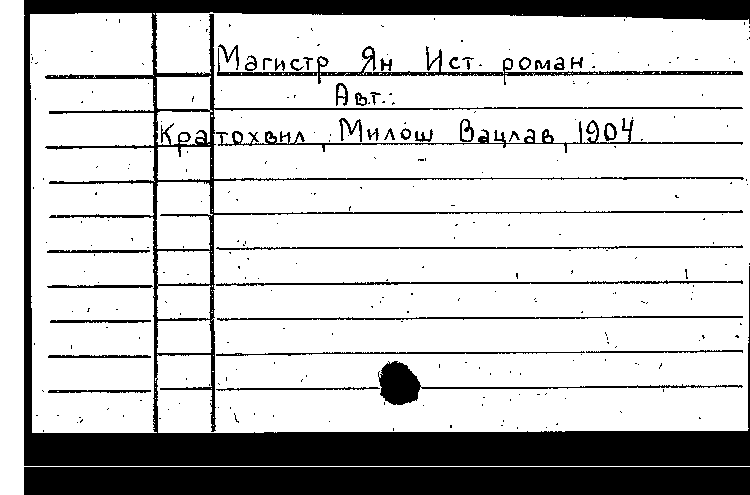 Магистр Ян Ист. роман.
Авт.:
Кратохвил, Милош Вацлав, 1904